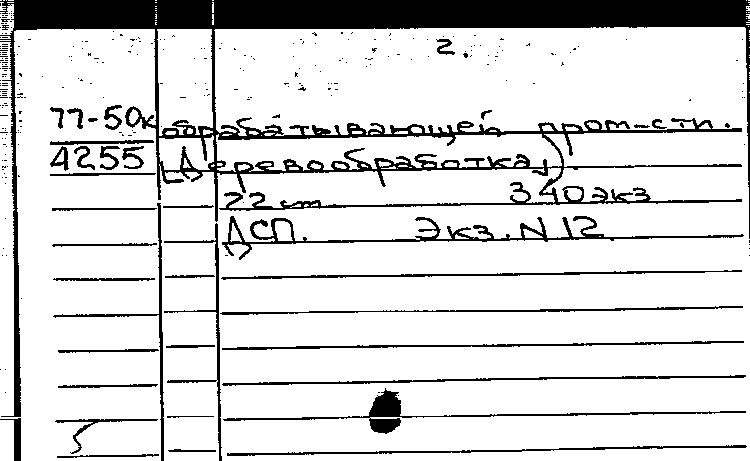 2.
77-50к обрабатывающей пром-сти.
4255 [Деревообработка]
22 cm 340 экз
ДСП. Экз. N 12